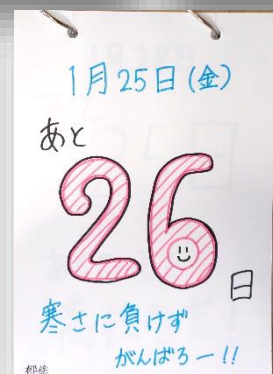 1月25日(金)
あと
26
日
寒さに負けず
がんばろー!!